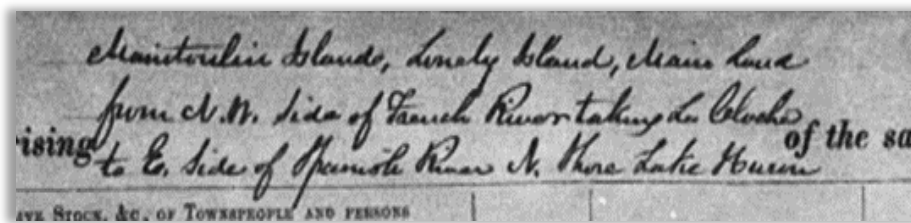 Manitoulin Islands, Lonely Island, Main Land
from N.W. Side of French River taking La Cloche
rising to E. Side of Spanish River N. Shore Lake Huron of the sa
AVE STOCK, &C., OF TOWNSPEOPLE AND PERSONS